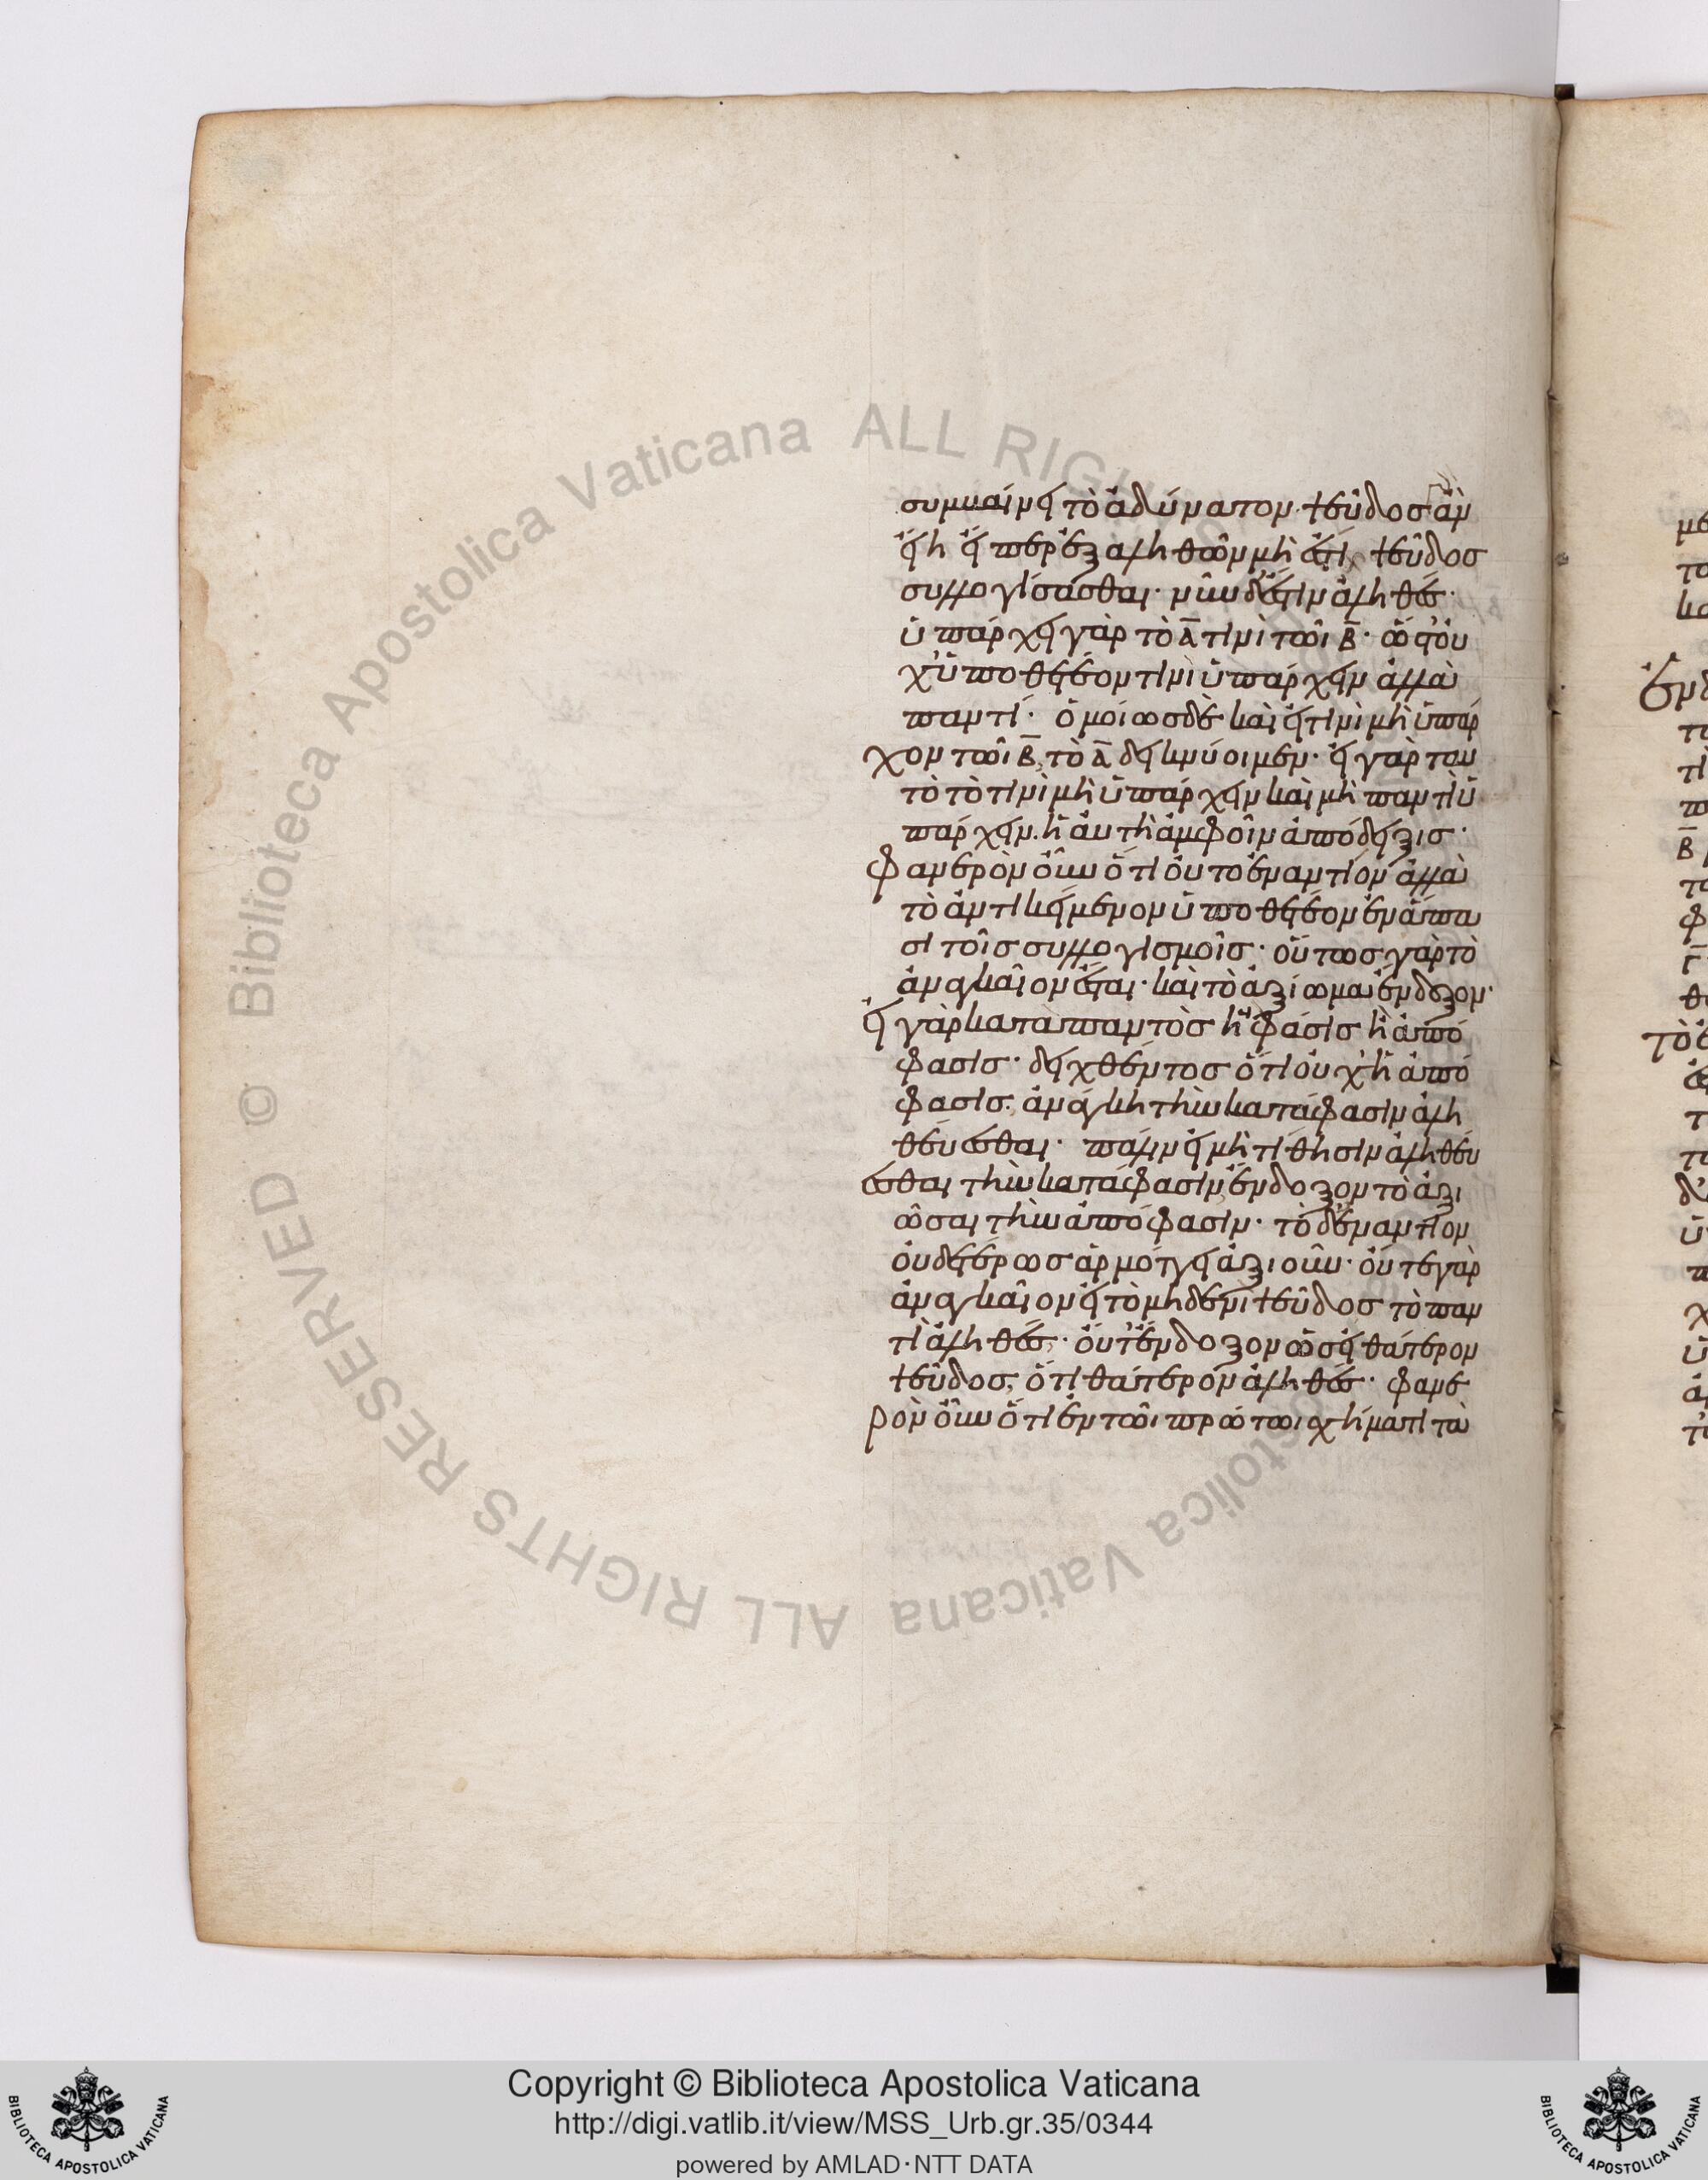 συμβαίνει τὸ ἀδύνατον· ψεῦδος ἂν
εἴη εἴπερ ἐξ ἀληθῶν μὴ ἔστι ψεῦδος
συλλογίσασθαι· νῦν δ' ἐστὶν ἀληθές·
ὑπάρχει γὰρ τὸ Α τινὶ τῶι Β· ὥστ' οὐ
χ' ὑποθετέον τινὶ ὑπάρχειν ἀλλὰ
παντί· ὁμοίως δὲ καὶ εἰ τινὶ μὴ ὑπάρ
χον τῶι Β, τὸ Α δεικνύοιμεν· εἰ γὰρ ταυ
τὸ τὸ τινὶ μὴ ὑπάρχειν καὶ μὴ παντὶ ὑ
πάρχειν. ἡ αὐτὴ ἀμφοῖν ἀπόδειξις·
φανερὸν οὖν ὅτι οὐ τὸ ἐναντίον ἀλλὰ
τὸ ἀντικείμενον ὑποθετέον ἐν ἅπα
σι τοῖς συλλογισμοῖς· οὕτως γὰρ τὸ
ἀναγκαῖον ἔσται· καὶ τὸ ἀξίωμα ἔνδοξον·
εἰ γὰρ κατὰ παντὸς ἢ φάσις ἢ ἀπό
φασις· δειχθέντος ὅτι οὐχ ἡ ἀπό
φασις. ἀνάγκη τὴν κατάφασιν ἀλη
θεύεσθαι· πάλιν εἰ μὴ τίθησιν ἀληθεύ
εσθαι τὴν κατάφασιν, ἔνδοξον τὸ ἀξι
ῶσαι τὴν ἀπόφασιν· τὸ δ' ἐναντίον
οὐδετέρως ἁρμόττει ἀξιοῦν· οὔτε γὰρ
ἀναγκαῖον εἰ τὸ μηδενὶ ψεῦδος τὸ παν
τὶ ἀληθές· οὔτ' ἔνδοξον ὡς εἰ θάτερον
ψεῦδος, ὅτι θάτερον ἀληθές· φανε
ρὸν οὖν ὅτι ἐν τῶι πρώτωι σχήματι τὰ
ALL RIGHTS RESERVED © Biblioteca Apostolica Vaticana
Copyright © Biblioteca Apostolica Vaticana
http://digi.vatlib.it/view/MSS_Urb.gr.35/0344
powered by AMLAD·NTT DATA
BIBLIOTECA APOSTOLICA VATICANA
BIBLIOTECA APOSTOLICA VATICANA